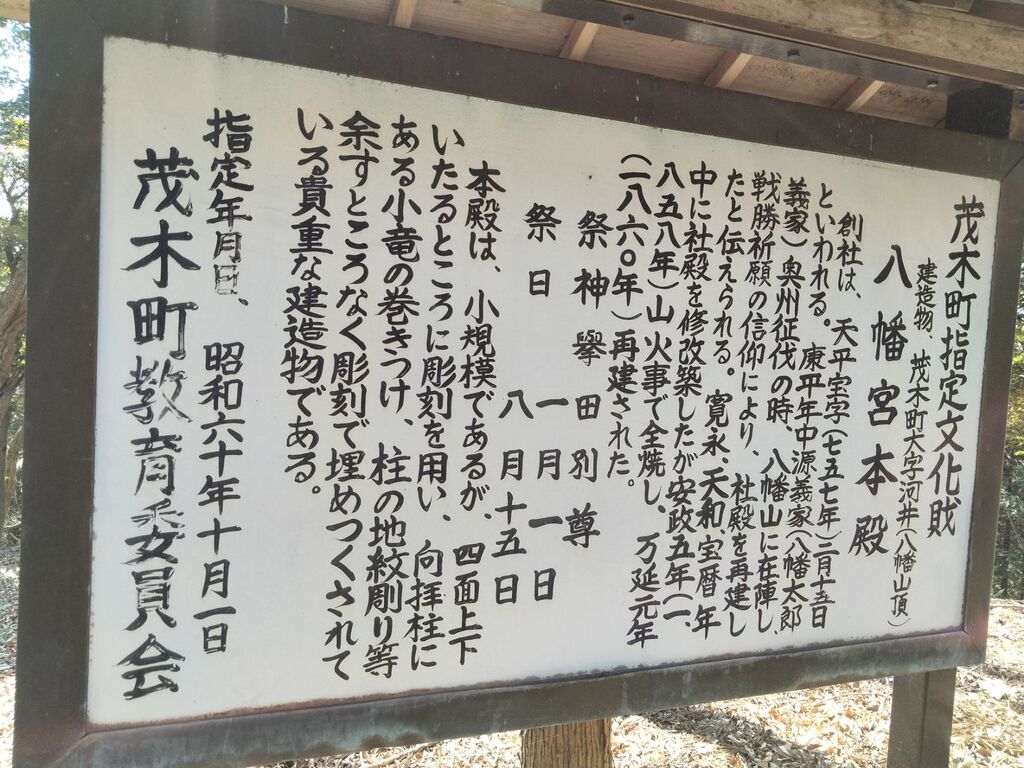 茂木町指定文化財
建造物、茂木町大字河井(八幡山頂)
八幡宮本殿
創社は、天平宝字(七五七年)二月十五日
といわれる。康平年中源義家(八幡太郎
義家)奥州征伐の時、八幡山に在陣し、
戦勝祈願の信仰により、社殿を再建し
たと伝えられる。寛永、天和、宝暦年
中に社殿を修改築したが安政五年(一
八五八年)山火事で全焼し、万延元年
(一八六〇年)再建された。
祭神 擧田別尊
祭日 一月一日
八月十五日
本殿は、小規模であるが、四面上下
いたるところに彫刻を用い、向拝柱に
ある小竜の巻きつけ、柱の地紋彫り等
余すところなく彫刻で埋めつくされて
いる貴重な建造物である。
指定年月日、昭和六十年十月一日
茂木町教育委員会